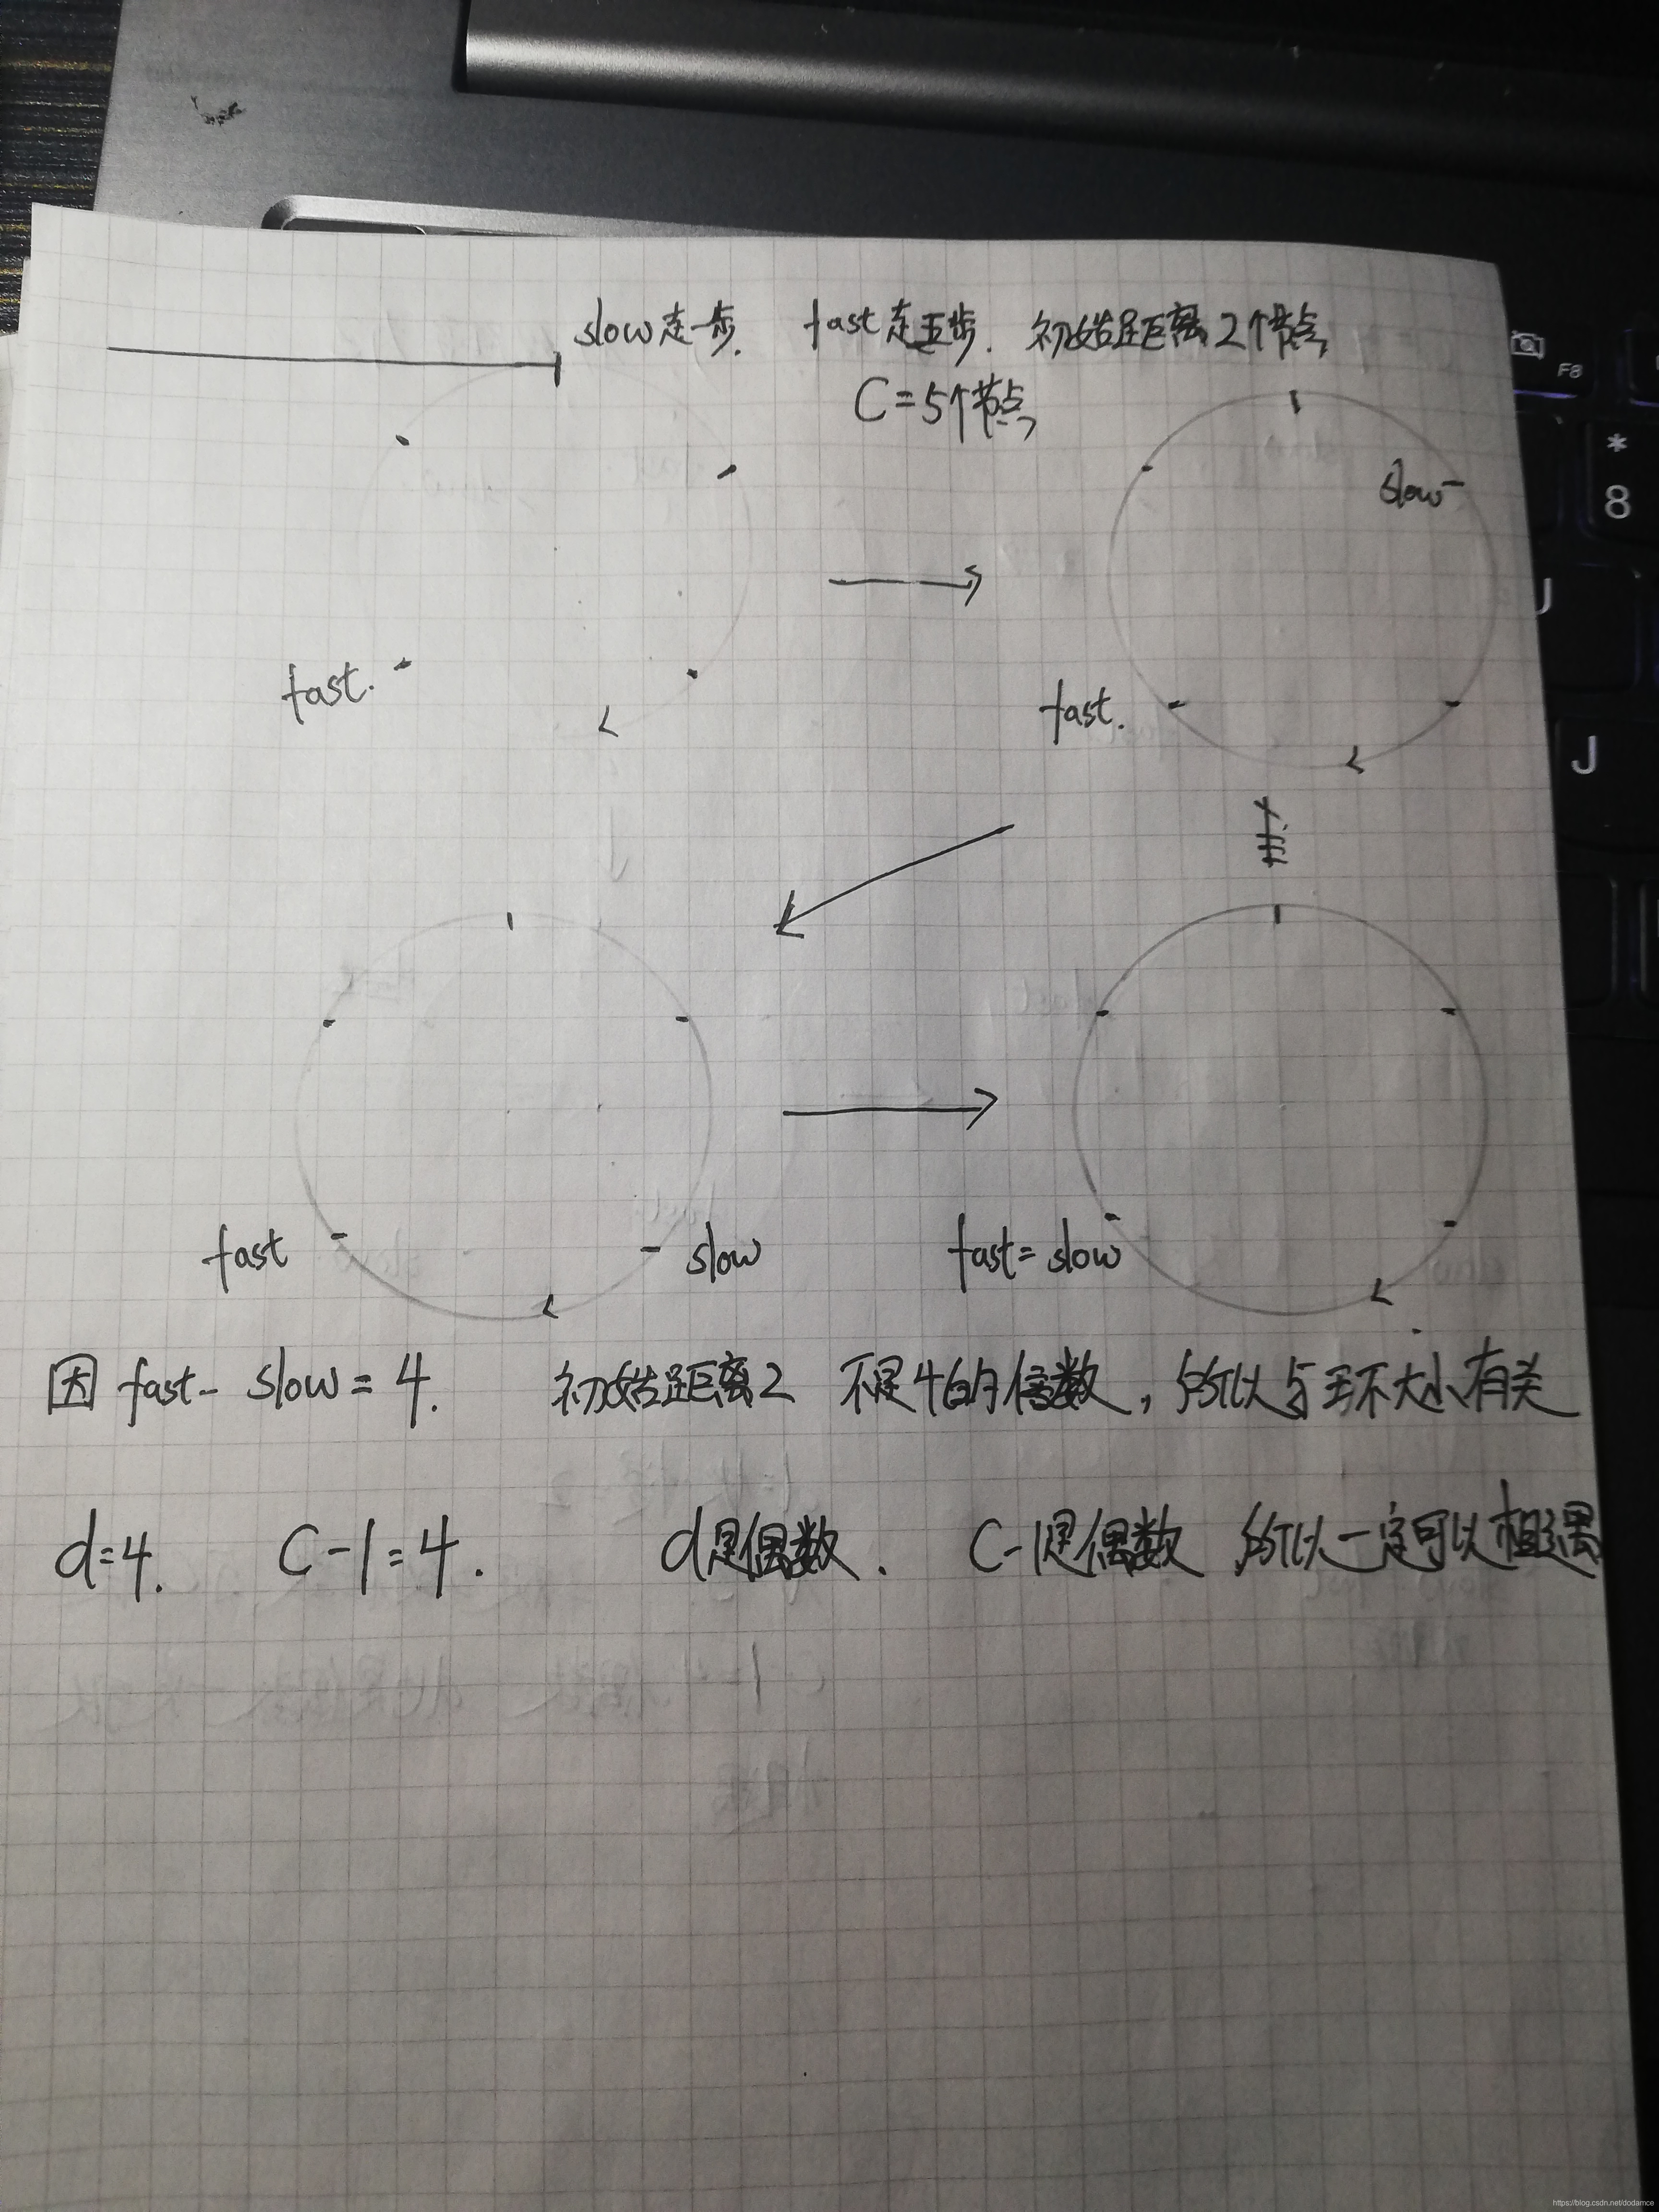 slow走一步. fast走五步. 初始距离2个节点
C=5个节点
slow
fast.
fast.
fast
slow
fast = slow
因 fast - slow = 4. 初始距离2 不是4的倍数, 所以与环大小有关
d=4. C-1=4. d是偶数. C-1是偶数 所以一定可以相遇
F8
*
8
J
J
https://blog.csdn.net/dodamce